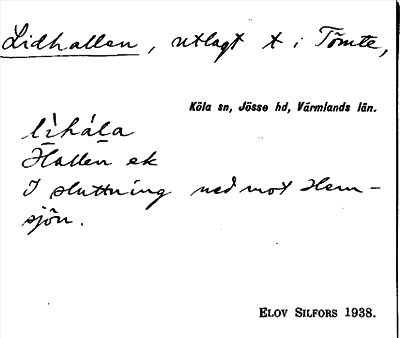 Lidhallen, utlagt t. i Tömte,
Köla sn, Jösse hd, Värmlands län.
lìhála
Hallen ek
I sluttning ned mot Hem-
sjön.
ELOV SILFORS 1938.